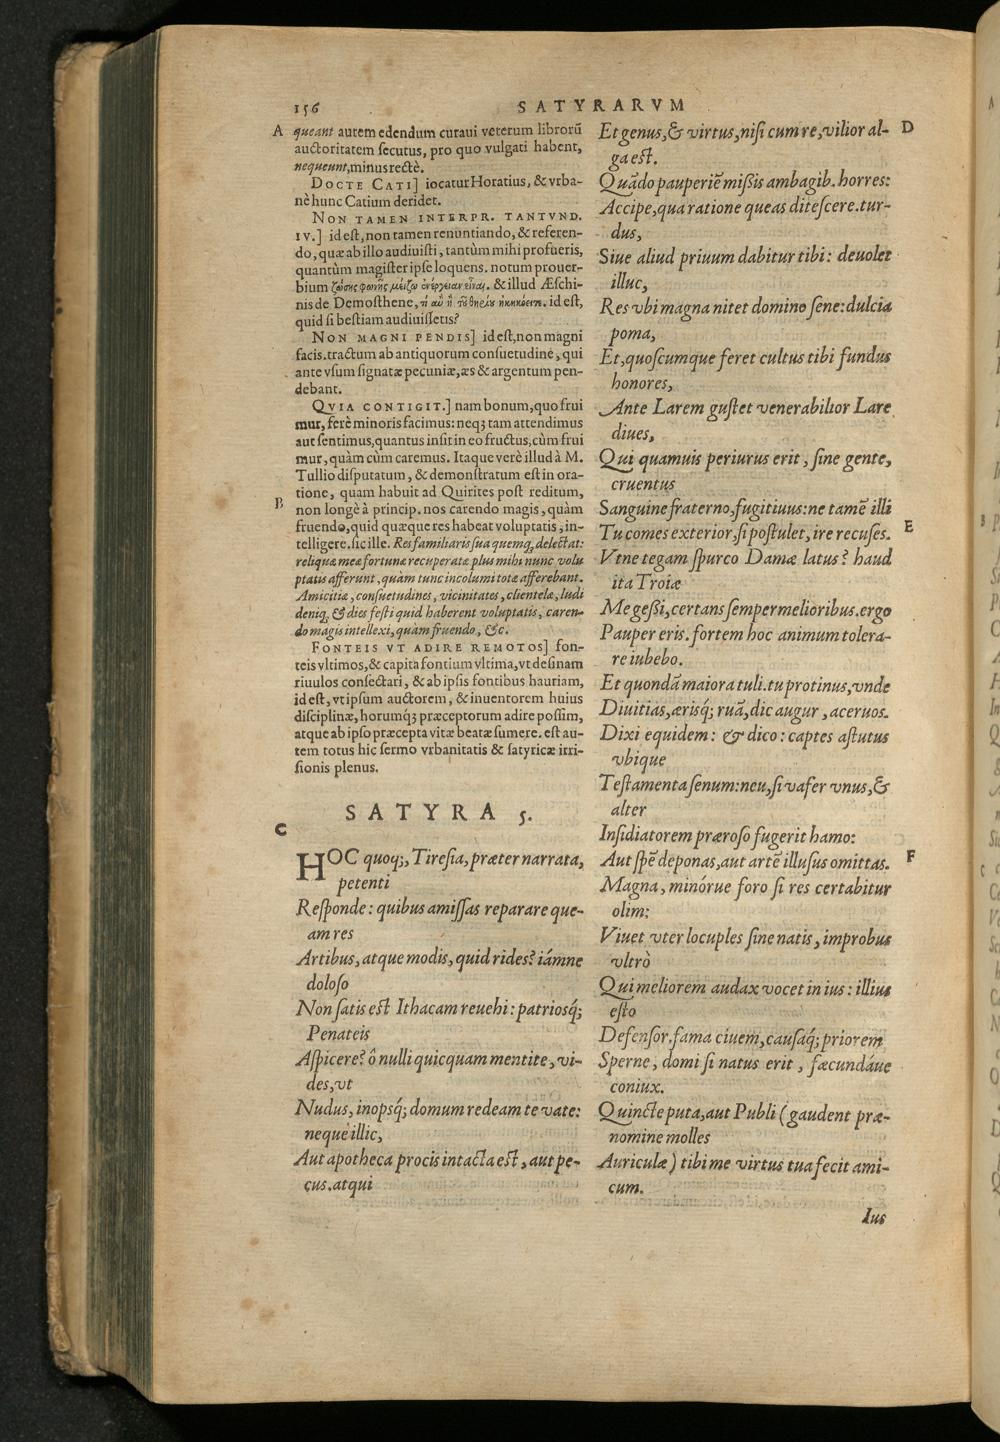 156
SATYRARVM
A
queant autem edendum curaui veterum librorū
auctoritatem secutus, pro quo vulgati habent,
nequeunt, minus rectè.
DOCTE CATI] iocatur Horatius, & vrba-
nè hunc Catium deridet.
NON TAMEN INTERPR. TANTVND.
IV.] id est, non tamen renuntiando, & referen-
do, quæ ab illo audiuisti, tantùm mihi profueris,
quantùm magister ipse loquens. notum prouer-
bium ζώσης φωνῆς μείζω ἐνέργειαν εἶναι. & illud Æschi-
nis de Demosthene, id est,
quid si bestiam audiuissetis?
NON MAGNI PENDIS] id est, non magni
facis. tractum ab antiquorum consuetudine, qui
ante vsum signatæ pecuniæ, æs & argentum pen-
debant.
QVIA CONTIGIT.] nam bonum, quo frui
mur, ferè minoris facimus: neq; tam attendimus
aut sentimus, quantus insit in eo fructus, cùm frui
mur, quàm cùm caremus. Itaque verè illud à M.
Tullio disputatum, & demonstratum est in ora-
tione, quam habuit ad Quirites post reditum,
B
non longè à princip. nos carendo magis, quàm
fruendo, quid quæque res habeat voluptatis, in-
telligere. sic ille. Res familiaris sua quemq, delectat:
reliquæ meæ fortunæ recuperatæ plus mihi nunc volu
ptatis afferunt, quàm tunc incolumi totæ afferebant.
Amicitiæ, consuetudines, vicinitates, clientelæ, ludi
deniq, & dies festi quid haberent voluptatis, caren-
do magis intellexi, quàm fruendo, &c.
FONTEIS VT ADIRE REMOTOS] fon-
teis vltimos, & capita fontium vltima, vt desinam
riuulos consectari, & ab ipsis fontibus hauriam,
id est, vt ipsum auctorem, & inuentorem huius
disciplinæ, horumq; præceptorum adire possim,
atque ab ipso præcepta vitæ beatæ sumere. est au-
tem totus hic sermo vrbanitatis & satyricæ irri-
sionis plenus.
SATYRA 5.
C
HOC quoq;, Tiresia, præter narrata,
petenti
Responde: quibus amissas reparare que-
am res
Artibus, atque modis, quid rides? iámne
doloso
Non satis est Ithacam reuehi: patriosq́;
Penateis
Aspicere? ô nulli quicquam mentite, vi-
des, vt
Nudus, inopsq́; domum redeam te vate:
neque illic,
Aut apotheca procis intacta est, aut pe-
cus. atqui
Et genus, & virtus, nisi cum re, vilior al-
D
ga est.
Quādo pauperiē missis ambagib. horres:
Accipe, qua ratione queas ditescere. tur-
dus,
Siue aliud priuum dabitur tibi: deuolet
illuc,
Res vbi magna nitet domino sene: dulcia
poma,
Et, quoscumque feret cultus tibi fundus
honores,
Ante Larem gustet venerabilior Lare
diues,
Qui quamuis periurus erit, sine gente,
cruentus
Sanguine fraterno, fugitiuus: ne tamē illi
Tu comes exterior, si postulet, ire recuses.
E
Vtne tegam spurco Damæ latus? haud
ita Troiæ
Me gessi, certans semper melioribus. ergo
Pauper eris. fortem hoc animum tolera-
re iubebo.
Et quondā maiora tuli. tu protinus, vnde
Diuitias, ærisq́; ruā, dic augur, aceruos.
Dixi equidem: & dico: captes astutus
vbique
Testamenta senum: neu, si vafer vnus, &
alter
Insidiatorem præroso fugerit hamo:
Aut spē deponas, aut artē illusus omittas.
F
Magna, minórue foro si res certabitur
olim:
Viuet vter locuples sine natis, improbus
vltrò
Qui meliorem audax vocet in ius: illius
esto
Defensor. fama ciuem, causaq́; priorem
Sperne, domi si natus erit, fæcundáue
coniux.
Quincte puta, aut Publi (gaudent præ-
nomine molles
Auriculæ) tibi me virtus tua fecit ami-
cum.
Ius